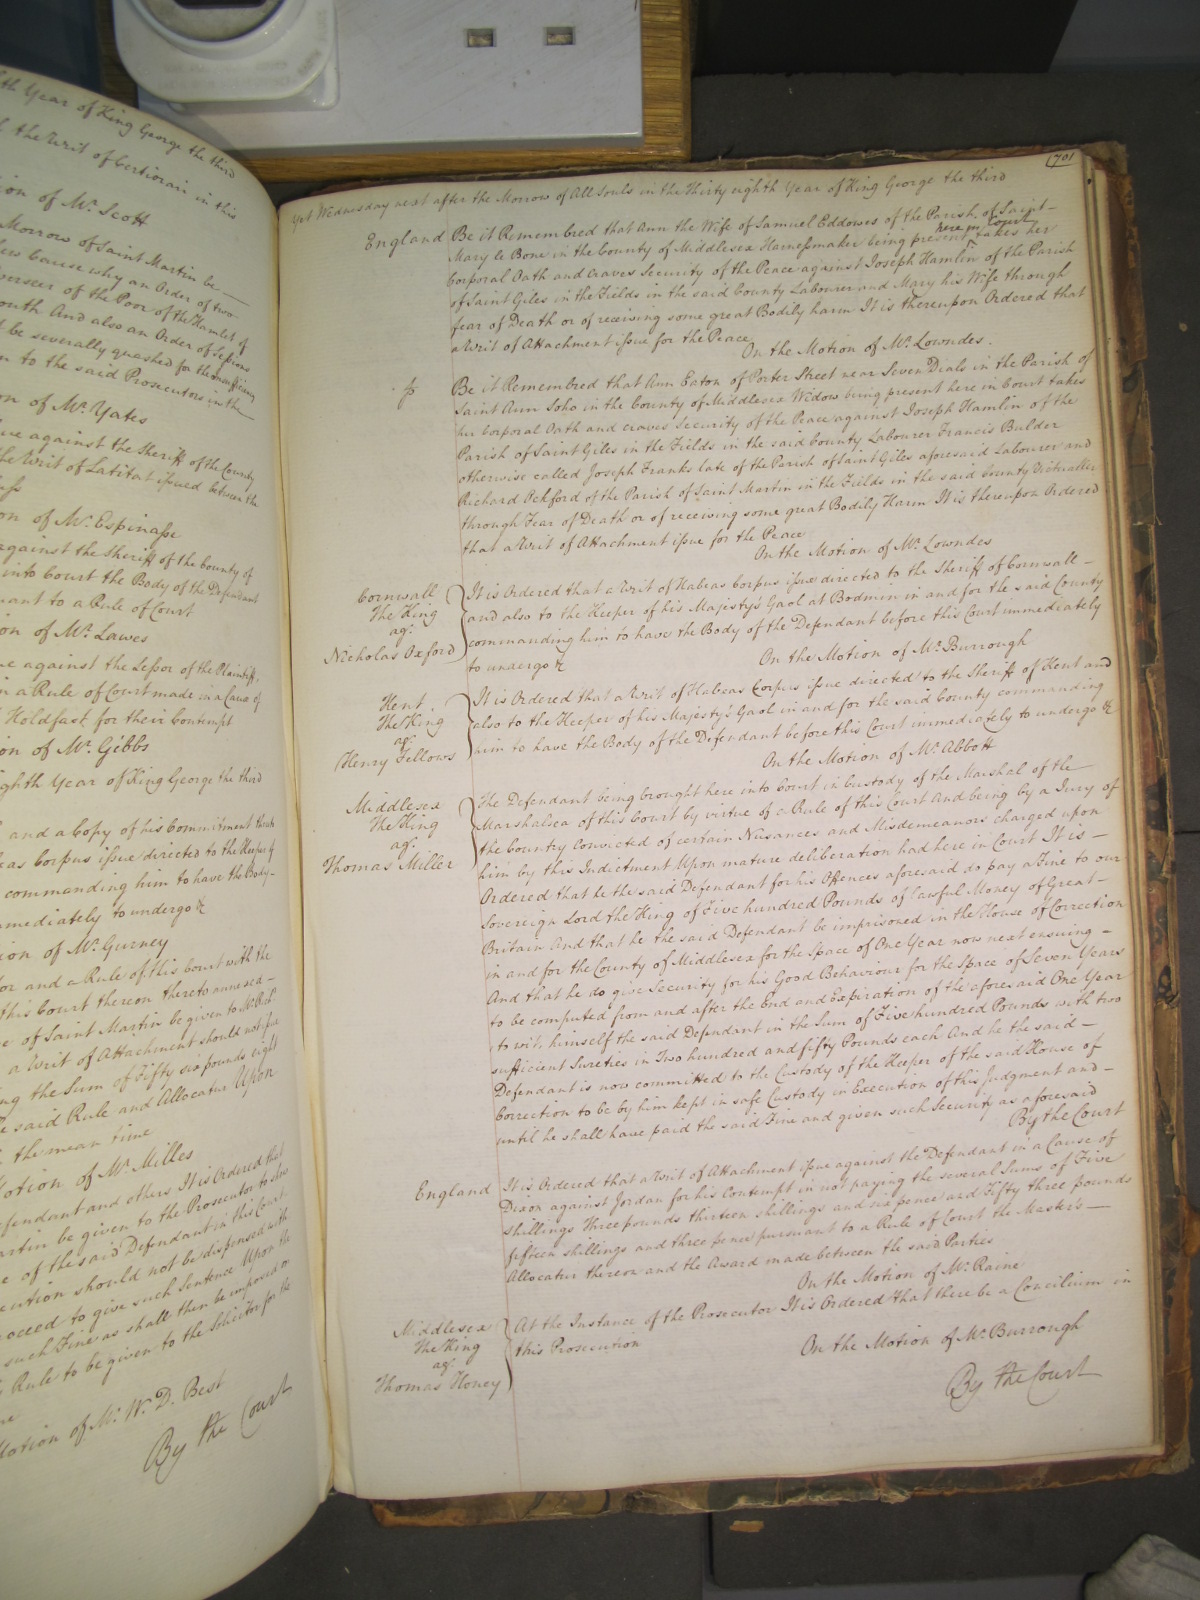 th Year of King George the third
the Writ of Certiorari in this
ion of Mr. Scott
Morrow of Saint Martin be
Cause why an Order of two
Overseer of the Poor of the Hamlet of
And also an Order of Sessions
be severally quashed for the insufficiency
to the said Prosecutors in the
on of Mr. Yates
against the Sheriff of the County
the Writ of Latitat issued between the
on of Mr. Espinasse
against the Sheriff of the County of
into Court the Body of the Defendant
uant to a Rule of Court
ion of Mr. Lawes
against the Lessor of the Plaintiff
in a Rule of Court made in a Cause of
Holdfast for their Contempt
on of Mr. Gibbs
ighth Year of King George the third
and a Copy of his Commitment
Corpus issue directed to the Keeper of
commanding him to have the Body
mmediately to undergo &c
ion of Mr. Gurney
or and a Rule of this Court with the
this Court thereon thereto annexed
of Saint Martin be given to
a Writ of Attachment should not issue
ng the Sum of Fifty six pounds eight
said Rule and Allocatur Upon
the mean time
Motion of Mr. Milles
efendant and others It is Ordered that
artin be given to the Prosecutor to shew
of the said Defendant in this Court
cution should not be dispensed with
oceed to give such Sentence Upon the
such Fine as shall then be imposed
Rule to be given to the Solicitor for the
Motion of Mr. W. D. Best
By the Court
701
Yet Wednesday next after the Morrow of All Souls in the Thirty eighth Year of King George the third
England Be it Remembered that Ann the Wife of Samuel Eddowes of the Parish of Saint
here in Court
Mary le Bone in the County of Middlesex Harnessmaker being present takes her
Corporal Oath and Craves Security of the Peace against Joseph Hamlin of the Parish
of Saint Giles in the Fields in the said County Labourer and Mary his Wife through
fear of Death or of receiving some great Bodily harm It is thereupon Ordered that
a Writ of Attachment issue for the Peace
On the Motion of Mr. Lowndes.
Be it Remembered that Ann Eaton of Porter Street near Seven Dials in the Parish of
Saint Ann Soho in the County of Middlesex Widow being present here in Court takes
her Corporal Oath and craves Security of the Peace against Joseph Hamlin of the
Parish of Saint Giles in the Fields in the said County Labourer Francis Bulder
otherwise called Joseph Franks late of the Parish of Saint Giles aforesaid Labourer and
Richard Peckford of the Parish of Saint Martin in the Fields in the said County Victualler
through Fear of Death or of receiving some great Bodily Harm It is thereupon Ordered
that a Writ of Attachment issue for the Peace
On the Motion of Mr. Lowndes
Cornwall
The King
agt.
Nicholas Oxford
It is Ordered that a Writ of Habeas Corpus issue directed to the Sheriff of Cornwall
and also to the Keeper of his Majesty's Gaol at Bodmin in and for the said County
commanding him to have the Body of the Defendant before this Court immediately
to undergo &c
On the Motion of Mr. Burrough
Kent.
The King
agt.
Henry Fellows
It is Ordered that a Writ of Habeas Corpus issue directed to the Sheriff of Kent and
also to the Keeper of his Majesty's Gaol in and for the said County commanding
him to have the Body of the Defendant before this Court immediately to undergo &c
On the Motion of Mr. Abbott
Middlesex
The King
agt.
Thomas Miller
The Defendant being brought here into Court in Custody of the Marshal of the
Marshalsea of this Court by virtue of a Rule of this Court And being by a Jury of
the Country Convicted of certain Nusances and Misdemeanors charged upon
him by this Indictment Upon mature deliberation had here in Court It is
Ordered that he the said Defendant for his Offences aforesaid do pay a Fine to our
Sovereign Lord the King of Five hundred Pounds of lawful Money of Great
Britain And that he the said Defendant be imprisoned in the House of Correction
in and for the County of Middlesex for the Space of One Year now next ensuing
And that he do give Security for his Good Behaviour for the Space of Seven Years
to be computed from and after the End and Expiration of the aforesaid One Year
to wit himself the said Defendant in the Sum of Five hundred Pounds with two
sufficient Sureties in Two hundred and fifty Pounds each And he the said
Defendant is now committed to the Custody of the Keeper of the said House of
Correction to be by him kept in safe Custody in Execution of this Judgment and
until he shall have paid the said Fine and given such Security as aforesaid
By the Court
England It is Ordered that a Writ of Attachment issue against the Defendant in a Cause of
Dixon against Jordan for his Contempt in not paying the several Sums of Five
shillings Three pounds thirteen shillings and six pence and Fifty three pounds
fifteen shillings and three pence pursuant to a Rule of Court the Master's
Allocatur thereon and the Award made between the said Parties
On the Motion of Mr. Raine
Middlesex
The King
agt.
Thomas Honey
At the Instance of the Prosecutor It is Ordered that there be a Concilium in
this Prosecution
On the Motion of Mr. Burrough
By the Court